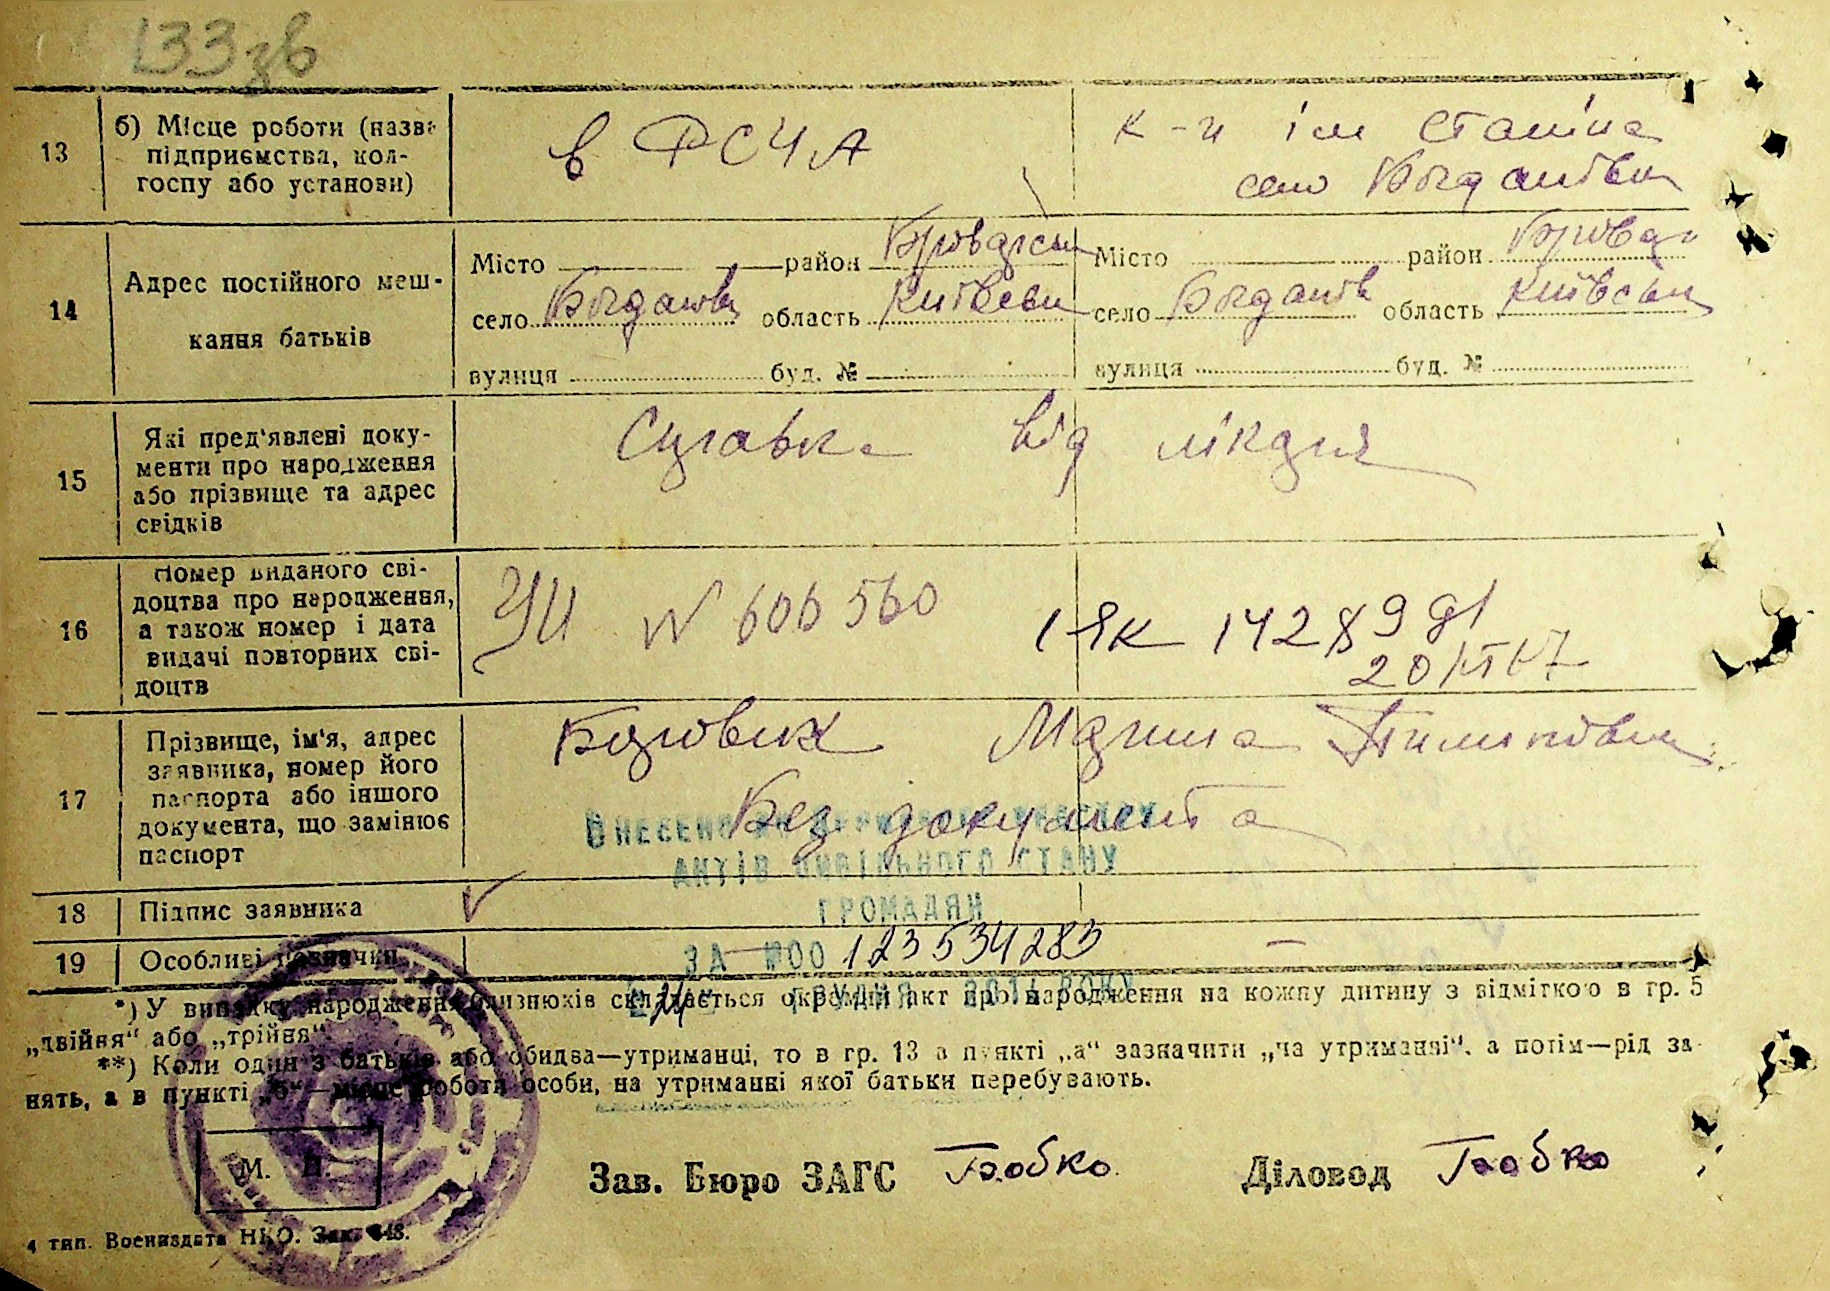 133зв
13
б) Місце роботи (назва підприємства, колгоспу або установи)
в РСЧА
к-п ім Сталіна
село Богданівка
14
Адрес постійного меш-
кання батьків
Місто район Броварськ
село Богданівк область Київськ
вулиця буд. №
Місто район Бровар
село Богданів область Київськ
вулиця буд. №
15
Які пред'явлені доку-
менти про народження
або прізвище та адрес
свідків
Справка від лікаря
16
Номер виданого сві-
доцтва про народження,
а також номер і дата
видачі повторних сві-
доцтв
УИ № 606560
I-ЯК 142889 от
17
Прізвище, ім'я, адрес
заявника, номер його
паспорта або іншого
документа, що замінює
паспорт
Боровик Марина
Без документа
Внесено до державного реєстру
актів цивільного стану
громадян
18
Підпис заявника
19
Особливі позначки
за №00 123534283
грудня 2017 року
*) У випадку народження близнюків складається окремий акт про народження на кожну дитину з відміткою в гр. 5
„двійня“ або „трійня“.
**) Коли один з батьків або обидва—утриманці, то в гр. 13 в пункті „а“ зазначити „на утриманні“, а потім—рід за-
нять, а в пункті „б“—місце роботи особи, на утриманні якої батьки перебувають.
М. П.
Зав. Бюро ЗАГС Бобко
Діловод Бобко
4 тип. Воениздата НКО. Зак. 648.